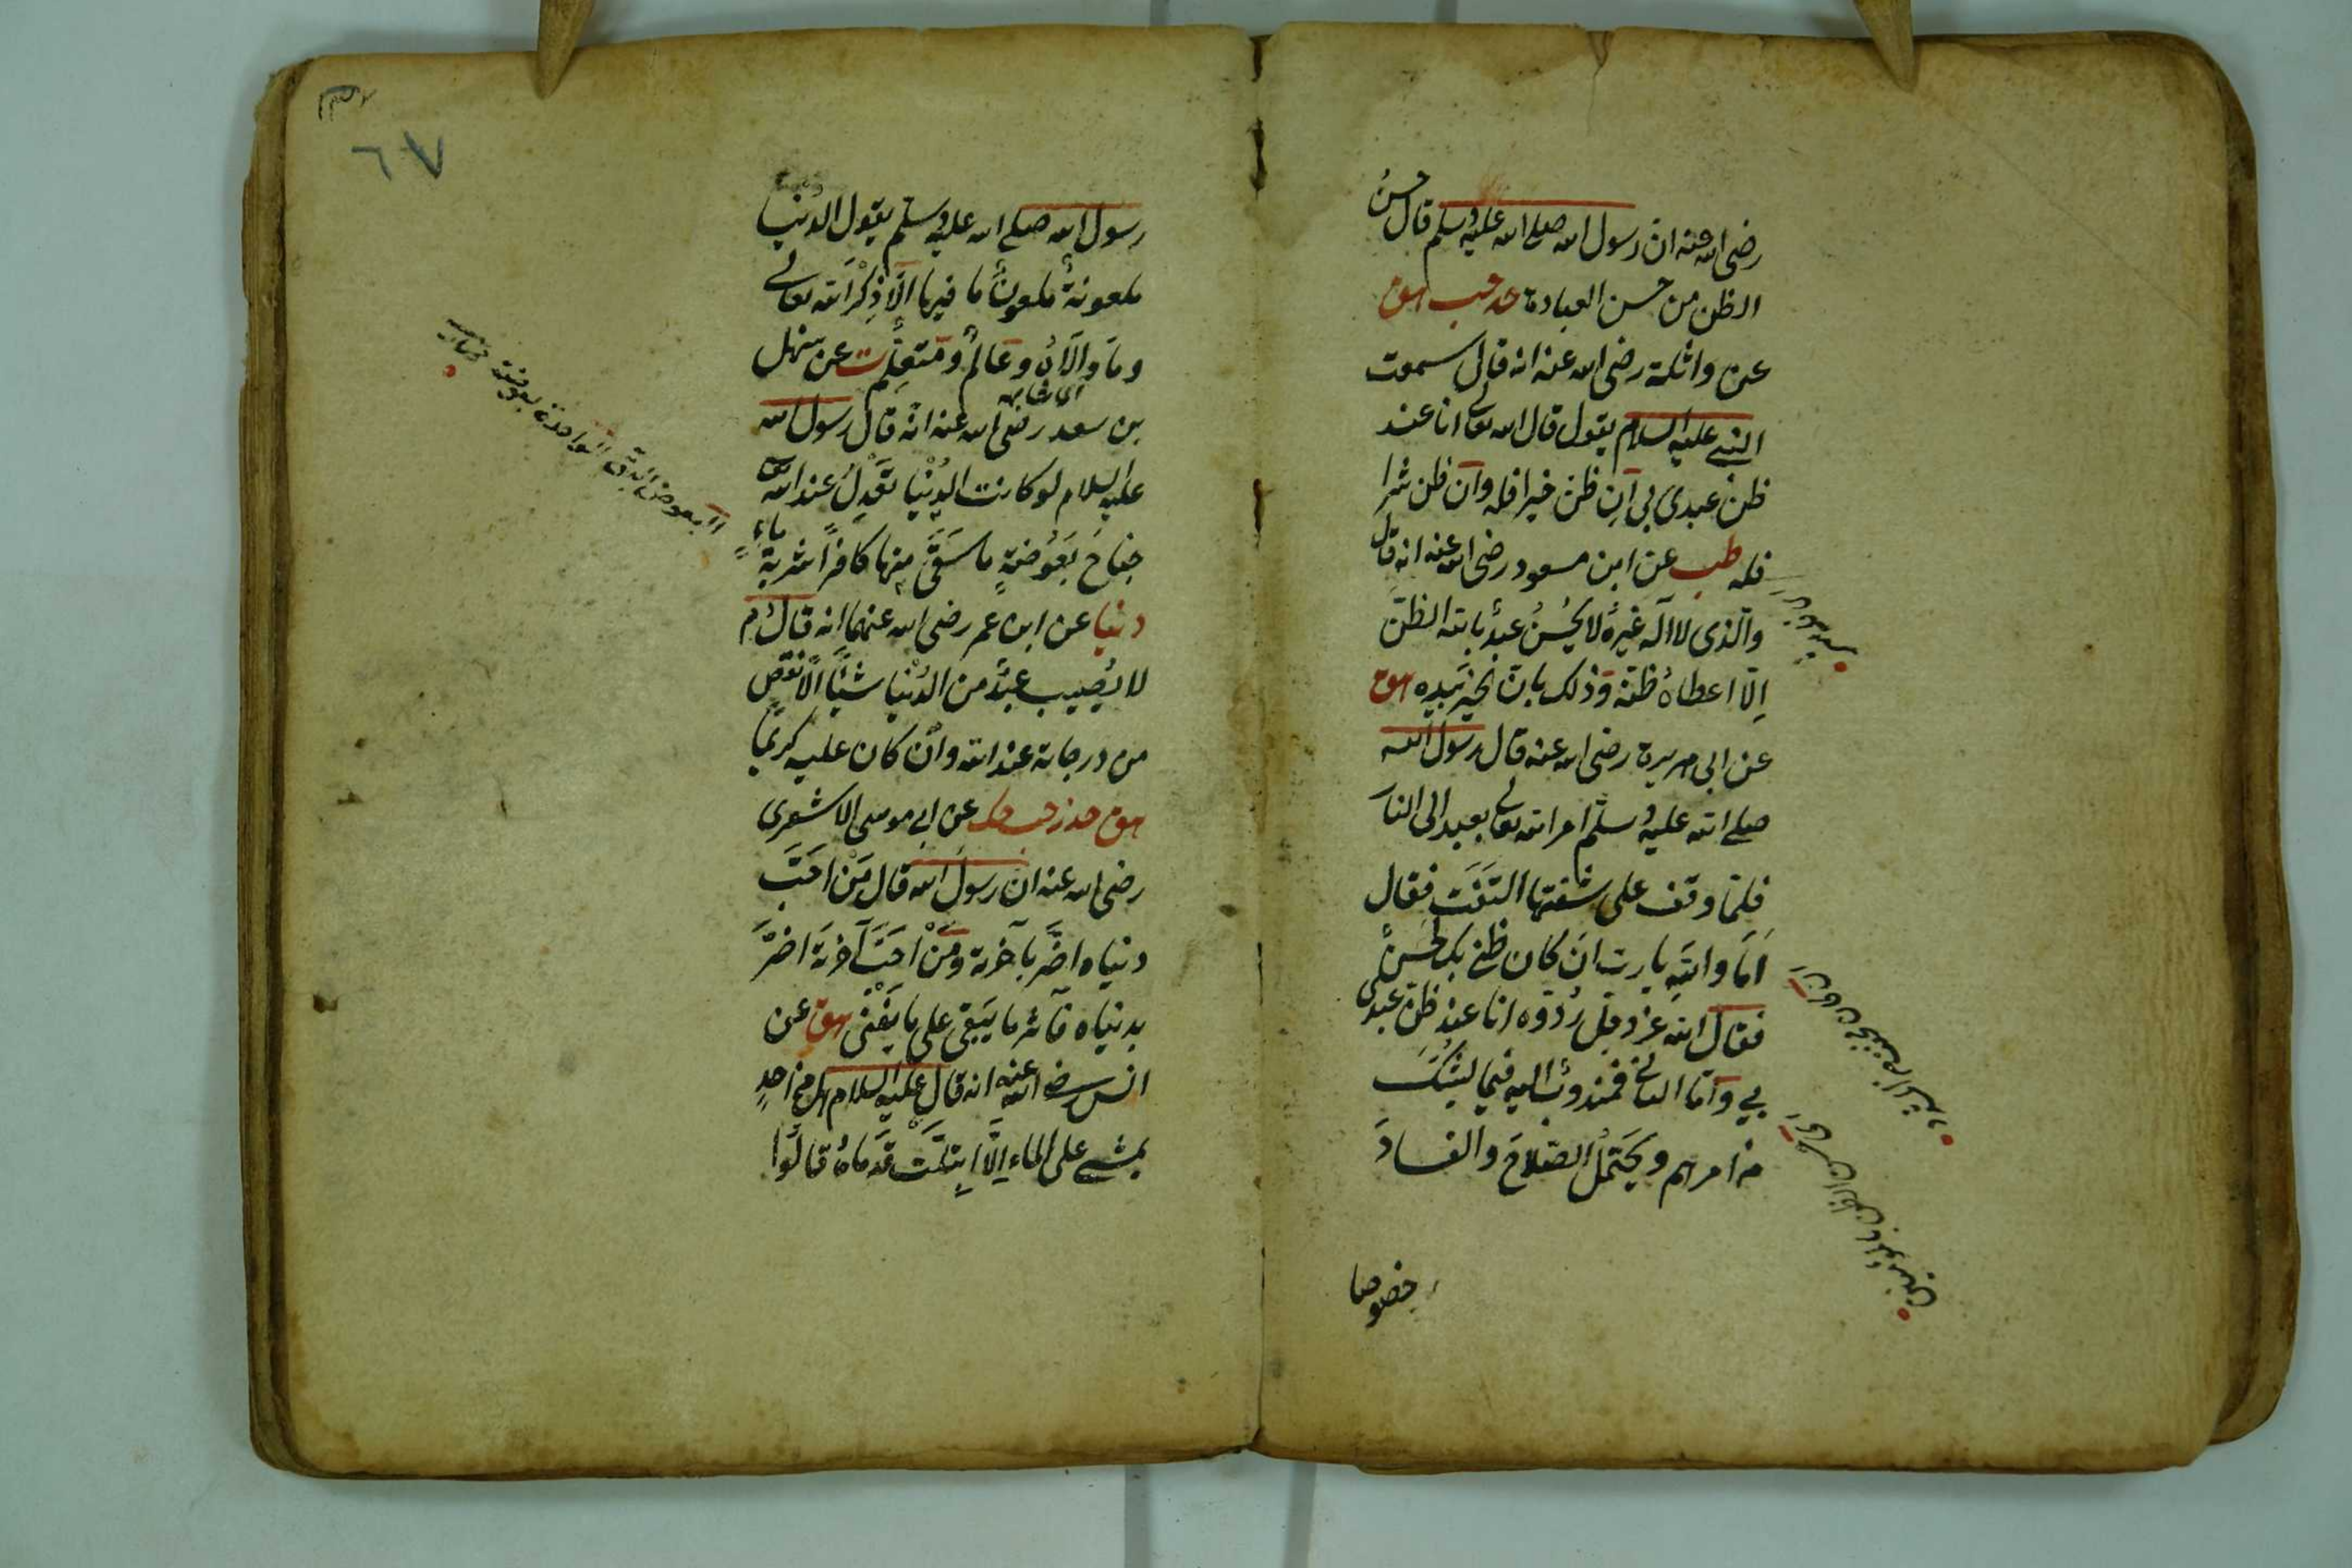 رضى الله عنه ان رسول الله صلى الله عليه وسلم قال حسن
الظن من حسن العبادة حد حب هق
عن واثلة رضى الله عنه انه قال سمعت
النبى عليه السلام يقول قال الله تعالى انا عند
ظن عبدى بى ان ظن خيرا فله وان ظن شرا
فله طب عن ابن مسعود رضى الله عنه انه قال
والذى لا اله غيره لا يحسن عبد بالله الظن
الا اعطاه ظنه وذلك بان الخير بيده هق
عن ابى هريرة رضى الله عنه قال رسول الله
صلى الله عليه وسلم امر الله تعالى بعبد الى النار
فلما وقف على شفتها التفت فقال
اما والله يا رب ان كان ظنى بك لحسن
فقال الله عز وجل ردوه انا عند ظن عبدى
بى واما الثانى فمندوب اليه فيما ليشك
من امرهم ويحتمل الصلاح والفساد
خصوصا
٦٧
رسول الله صلى الله عليه وسلم يقول الدنيا
ملعونة ملعون ما فيها الا ذكر الله تعالى
وما والاه وعالم ومتعلم ت عن سهل
اى شابه
بن سعد رضى الله عنه انه قال رسول الله
عليه السلام لو كانت الدنيا تعدل عند الله
جناح بعوضة ما سقى منها كافرا شربة ماء
دنيا عن ابن عمر رضى الله عنهما انه قال م
لا يصيب عبد من الدنيا شيئا الا نقص
من درجاته عند الله وان كان عليه كريما
هق حد ز حب حك عن ابى موسى الاشعرى
رضى الله عنه ان رسول الله قال من احب
دنياه اضر بآخرته ومن احب آخرته اضر
بدنياه فآثر ما يبقى على ما يفنى هق عن
انس رضى الله عنه انه قال عليه السلام هل من احد
يمشى على الماء الا ابتلت قدماه قالوا
البعوض البق الواحدة بعوضة